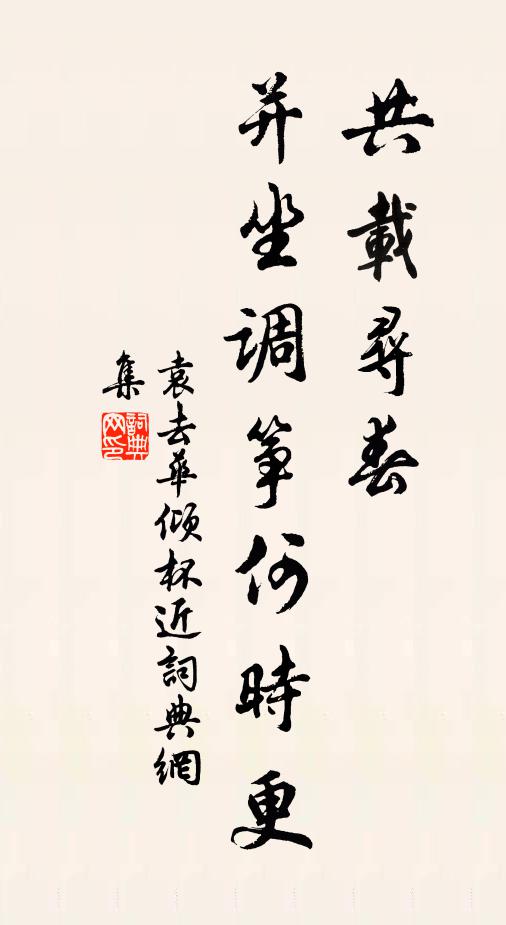 共載尋春
并坐調筝何時更
袁去華傾杯近詞典網
集
詞典網印